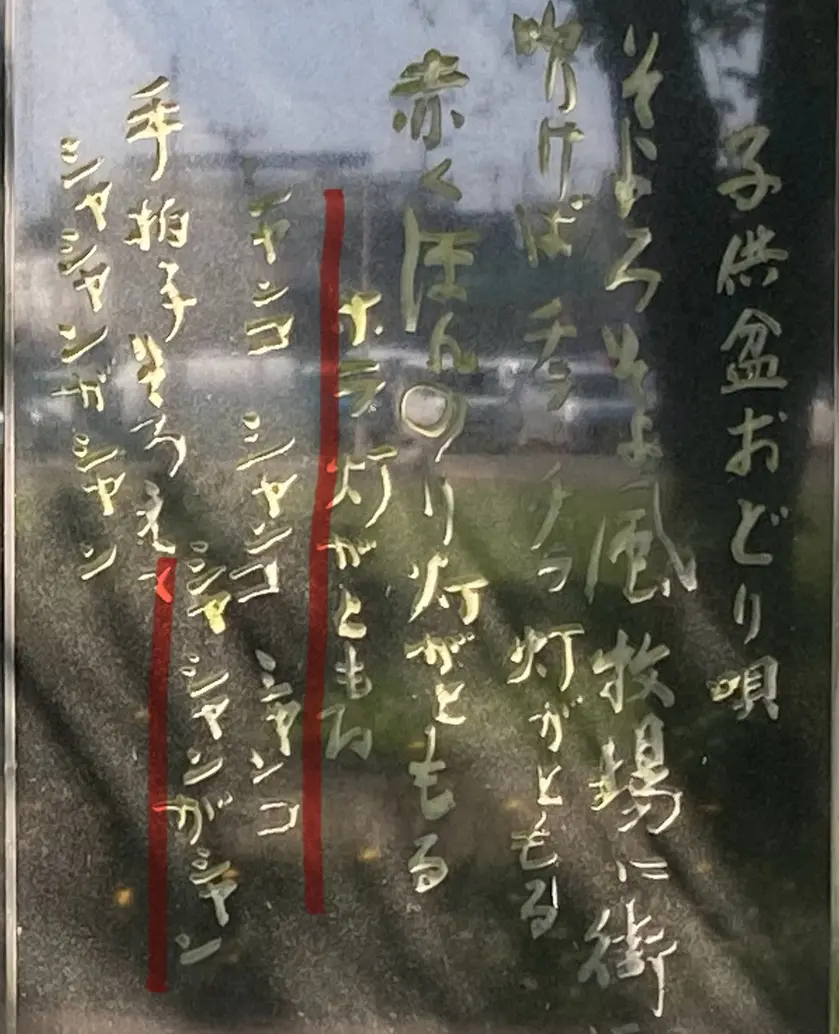 子供盆おどり唄
そよろそよ風 牧場に街に
吹けば チラ チラ 灯がともる
赤くほんのり灯がともる
ホラ 灯がともる
シャンコ シャンコ シャンコ
シャ シャンがシャン
手拍子そろえて
シャシャンガシャン